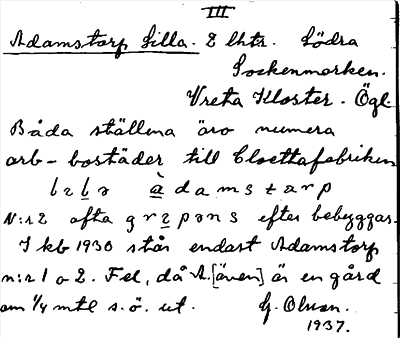 III
Adamstorp Lilla. 2 lhtr. Södra
Sockenmarken.
Vreta Kloster. Ögl.
Båda ställena äro numera
arb-bostäder till Cloettafabriken
N:r 2 ofta grepəns efter bebyggar.
I kb 1930 står endast Adamstorp
n:r 1 o 2. Fel, då A. [även] är en gård
om 1/4 mtl s.ö. ut. G. Olson.
1937.